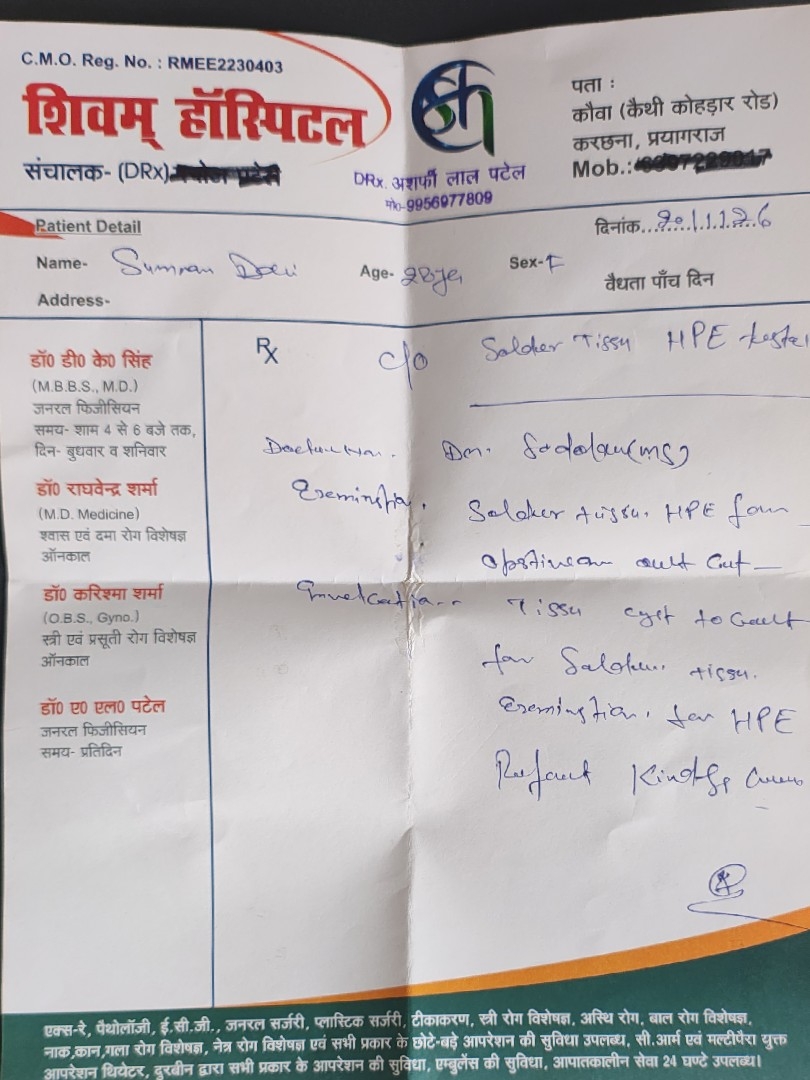 C.M.O. Reg. No. : RMEE2230403
शिवम् हॉस्पिटल
संचालक- (DRx)
DRx. अशर्फी लाल पटेल
मो०-9956977809
पता :
कौवा (कैथी कोहड़ार रोड)
करछना, प्रयागराज
Mob.:
Patient Detail
दिनांक
Name- Suman Devi Age- 28 Sex- F
वैधता पाँच दिन
Address-
डॉ० डी० के० सिंह
(M.B.B.S., M.D.)
जनरल फिजीसियन
समय- शाम 4 से 6 बजे तक,
दिन- बुधवार व शनिवार
डॉ० राघवेन्द्र शर्मा
(M.D. Medicine)
श्वास एवं दमा रोग विशेषज्ञ
ऑनकाल
डॉ० करिश्मा शर्मा
(O.B.S., Gyno.)
स्त्री एवं प्रसूती रोग विशेषज्ञ
ऑनकाल
डॉ० ए० एल० पटेल
जनरल फिजीसियन
समय- प्रतिदिन
Rx c/o Solder Tissu HPE
Dr. (MS)
Solder tissu. HPE
Tissu cyst to
for tissu.
for HPE
एक्स-रे, पैथोलॉजी, ई.सी.जी., जनरल सर्जरी, प्लास्टिक सर्जरी, टीकाकरण, स्त्री रोग विशेषज्ञ, अस्थि रोग, बाल रोग विशेषज्ञ,
नाक,कान,गला रोग विशेषज्ञ, नेत्र रोग विशेषज्ञ एवं सभी प्रकार के छोटे-बड़े आपरेशन की सुविधा उपलब्ध, सी.आर्म एवं मल्टीपैरा युक्त
आपरेशन थियेटर, दुरबीन द्वारा सभी प्रकार के आपरेशन की सुविधा, एम्बुलेंस की सुविधा, आपातकालीन सेवा 24 घण्टे उपलब्ध।